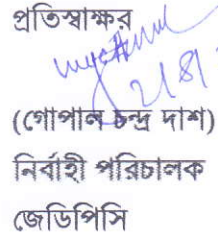 প্রতিস্বাক্ষর
২/৪/
(গোপাল চন্দ্র দাশ)
নির্বাহী পরিচালক
জেডিপিসি